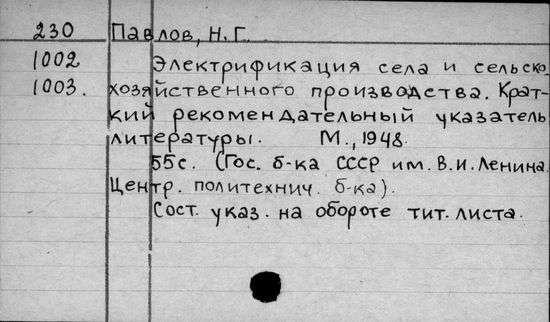 230 Павлов, Н.Г.
1002 Электрификация села и сельско
1003. хозяйственного производства. Крат-
кий рекомендательный указатель
литературы. М., 1948.
55с. (Гос. б-ка СССР им. В.И. Ленина.
Центр. политехнич. б-ка).
Сост. указ. на обороте тит. листа.